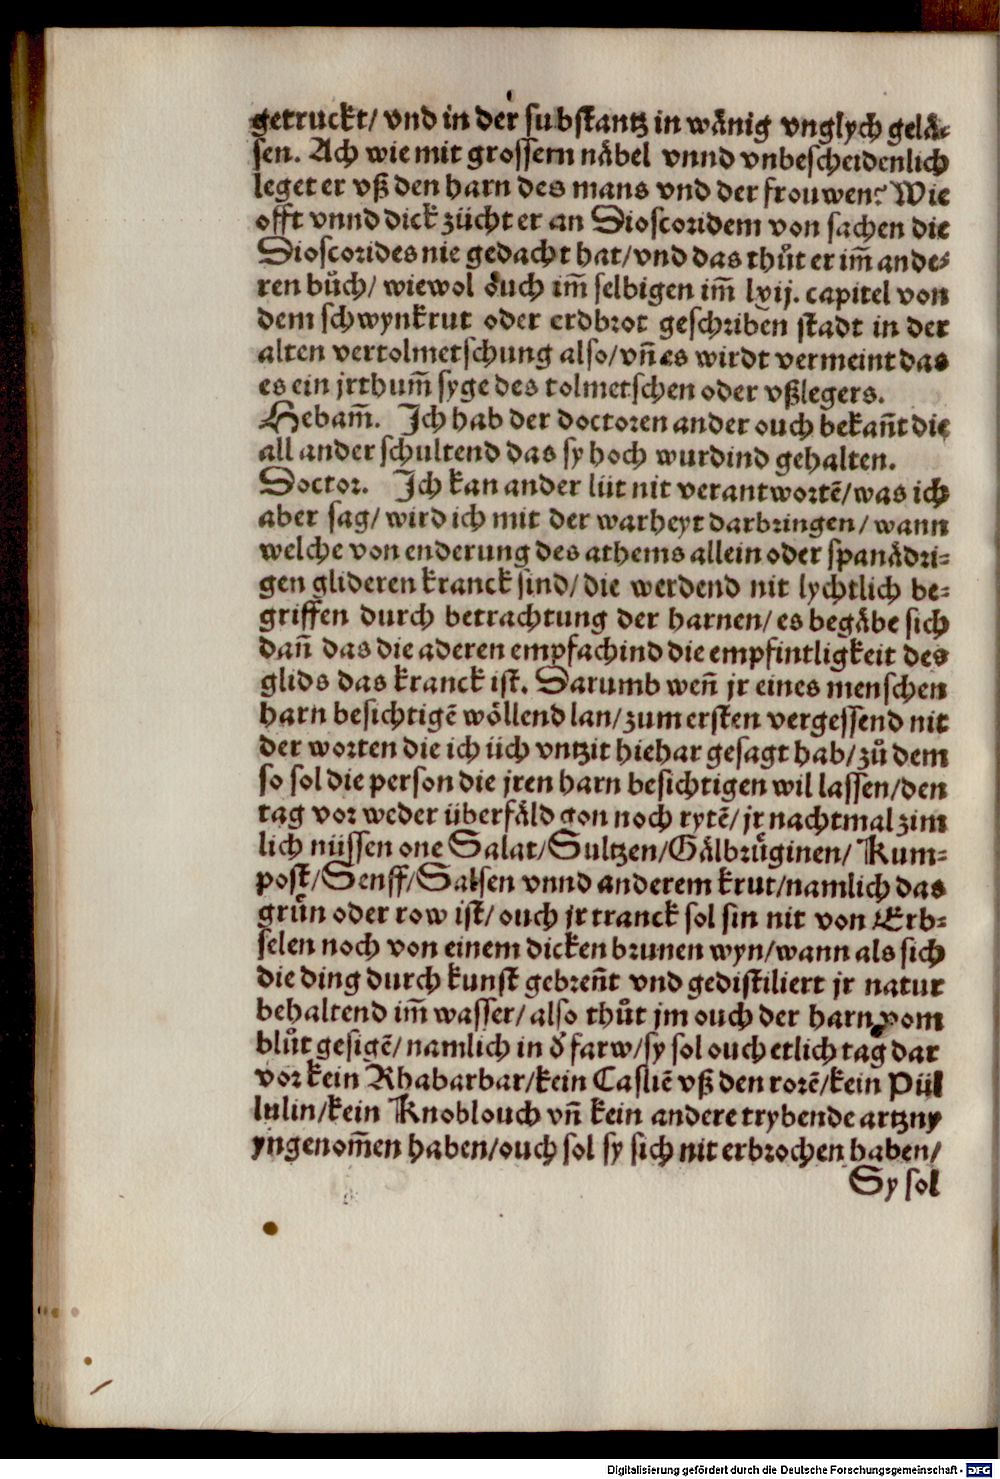 getruckt/ vnd in der substantz in wänig vnglych gelä⸗
sen. Ach wie mit grossem näbel vnnd vnbescheidenlich
leget er vß den harn des mans vnd der frouwen? Wie
offt vnnd dick zücht er an Dioscoridem von sachen die
Dioscorides nie gedacht hat/ vnd das thůt er im̃ ande⸗
ren bůch/ wiewol ouch im̃ selbigen im̃ lxij. capitel von
dem schwynkrut oder erdbrot geschriben stadt in der
alten vertolmetschung also/ vñ es wirdt vermeint das
es ein jrthum̃ syge des tolmetschen oder vßlegers.
Hebam̃. Ich hab der doctoren ander ouch bekañt die
all ander schultend das sy hoch wurdind gehalten.
Doctor. Ich kan ander lüt nit verantwortẽ/ was ich
aber sag/ wird ich mit der warheyt darbringen/ wann
welche von enderung des athems allein oder spanädri⸗
gen glideren kranck sind/ die werdend nit lychtlich be⸗
griffen durch betrachtung der harnen/ es begäbe sich
dañ das die aderen empfachind die empfintligkeit des
glids das kranck ist. Darumb weñ jr eines menschen
harn besichtigẽ wöllend lan/ zum ersten vergessend nit
der worten die ich üch vntzit hiehar gesagt hab/ zů dem
so sol die person die jren harn besichtigen wil lassen/ den
tag vor weder überfäld gon noch rytẽ/ jr nachtmal zim
lich nüssen one Salat/ Sultzen/ Gälbrůginen/ Kum⸗
post/ Senff/ Salsen vnnd anderem krut/ namlich das
grün oder row ist/ ouch jr tranck sol sin nit von Erb⸗
selen noch von einem dicken brunen wyn/ wann als sich
die ding durch kunst gebreñt vnd gedistiliert jr natur
behaltend im̃ wasser/ also thůt jm ouch der harn vom
blůt gesigẽ/ namlich in d̕ farw/ sy sol ouch etlich tag dar
vor kein Rhabarbar/ kein Casliẽ vß den rorẽ/ kein Pül
lulin/ kein Knoblouch vñ kein andere trybende artzny
yngenom̃en haben/ ouch sol sy sich nit erbrochen haben/
Sy sol
Digitalisierung gefördert durch die Deutsche Forschungsgemeinschaft - DFG